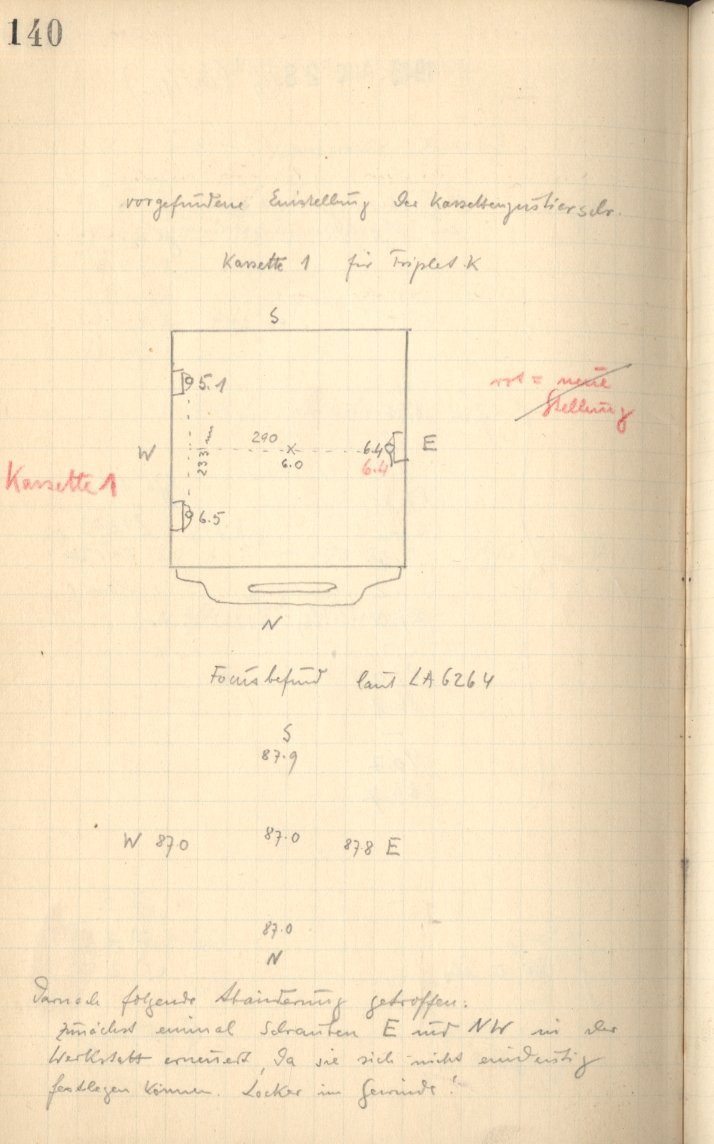 140
vorgefundene Einstellung der Kassettenjustierschr.
Kassette 1 für Triplet K
S
5.1
rot = neue
Stellung
W
290
6.4
E
233
6.0
6.4
Kassette 1
6.5
N
Focusbefund laut LA 6264
S
87.9
W 87.0 87.0 87.8 E
87.0
N
Darnach folgende Abänderung getroffen:
zunächst einmal Schrauben E und NW in der
Werkstatt erneuert, da sie sich nicht eindeutig
festlegen können. Locker im Gewinde!